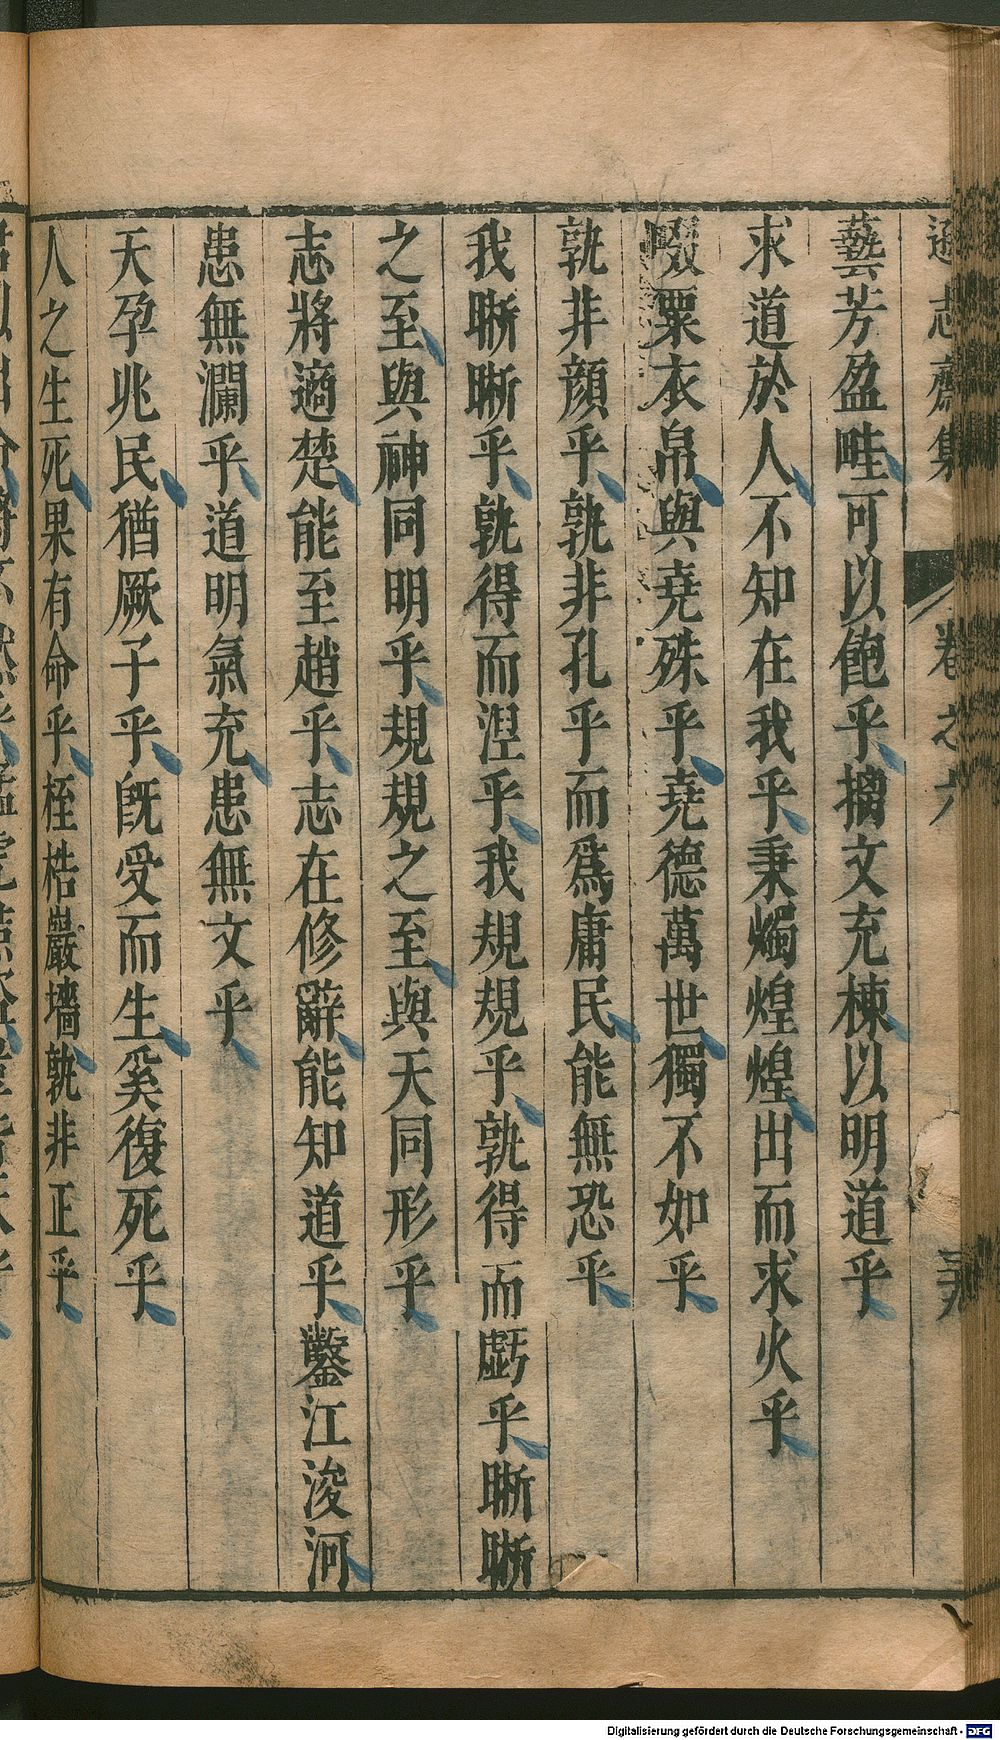 遜志齋集 卷之六
藝芳盈畦可以飽乎摛文充棟以明道乎
求道於人不知在我乎秉燭煌煌出而求火乎
啜粟衣帛與堯殊乎堯德萬世獨不如乎
孰非顔乎孰非孔乎而爲庸民能無恐乎
我晰晰乎孰得而湼乎我規規乎孰得而虧乎晰晰
之至與神同明乎規規之至與天同形乎
志將適楚能至趙乎志在修辭能知道乎鑿江浚河
患無瀾乎道明氣充患無文乎
天孕兆民猶厥子乎旣受而生奚復死乎
人之生死果有命乎桎梏巖墻孰非正乎
Digitalisierung gefördert durch die Deutsche Forschungsgemeinschaft - DFG